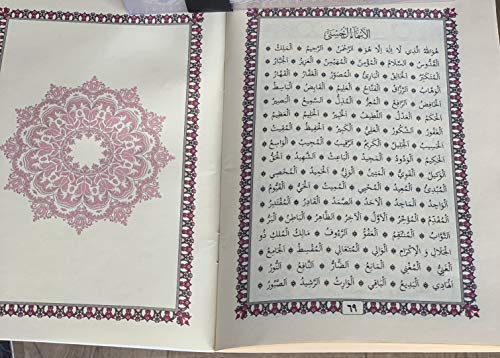 الأَسْمَاءُ الْحُسْنَى
هُوَ اللهُ الَّذِي لَا إِلَهَ إِلَّا هُوَ * الرَّحْمَنُ * الرَّحِيمُ * الْمَلِكُ
الْقُدُّوسُ * السَّلَامُ * الْمُؤْمِنُ * الْمُهَيْمِنُ * الْعَزِيزُ * الْجَبَّارُ
الْمُتَكَبِّرُ * الْخَالِقُ * الْبَارِئُ * الْمُصَوِّرُ * الْغَفَّارُ * الْقَهَّارُ
الْوَهَّابُ * الرَّزَّاقُ * الْفَتَّاحُ * الْعَلِيمُ * الْقَابِضُ * الْبَاسِطُ
الْخَافِضُ * الرَّافِعُ * الْمُعِزُّ * الْمُذِلُّ * السَّمِيعُ * الْبَصِيرُ
الْحَكَمُ * الْعَدْلُ * اللَّطِيفُ * الْخَبِيرُ * الْحَلِيمُ * الْعَظِيمُ
الْغَفُورُ * الشَّكُورُ * الْعَلِيُّ * الْكَبِيرُ * الْحَفِيظُ * الْمُقِيتُ
الْحَسِيبُ * الْجَلِيلُ * الْكَرِيمُ * الرَّقِيبُ * الْمُجِيبُ * الْوَاسِعُ
الْحَكِيمُ * الْوَدُودُ * الْمَجِيدُ * الْبَاعِثُ * الشَّهِيدُ * الْحَقُّ
الْوَكِيلُ * الْقَوِيُّ * الْمَتِينُ * الْوَلِيُّ * الْحَمِيدُ * الْمُحْصِي
الْمُبْدِئُ * الْمُعِيدُ * الْمُحْيِي * الْمُمِيتُ * الْحَيُّ * الْقَيُّومُ
الْوَاجِدُ * الْمَاجِدُ * الْوَاحِدُ * الصَّمَدُ * الْقَادِرُ * الْمُقْتَدِرُ
الْمُقَدِّمُ * الْمُؤَخِّرُ * الْأَوَّلُ * الْآخِرُ * الظَّاهِرُ * الْبَاطِنُ * الْبَرُّ
التَّوَّابُ * الْمُنْتَقِمُ * الْعَفُوُّ * الرَّؤُوفُ * مَالِكُ الْمُلْكِ ذُو
الْجَلَالِ وَ الْإِكْرَامِ * الْوَالِي * الْمُتَعَالِي * الْمُقْسِطُ * الْجَامِعُ
الْغَنِيُّ * الْمُغْنِي * الْمَانِعُ * الضَّارُّ * النَّافِعُ * النُّورُ
الْهَادِي * الْبَدِيعُ * الْبَاقِي * الْوَارِثُ * الرَّشِيدُ * الصَّبُورُ
٦٩